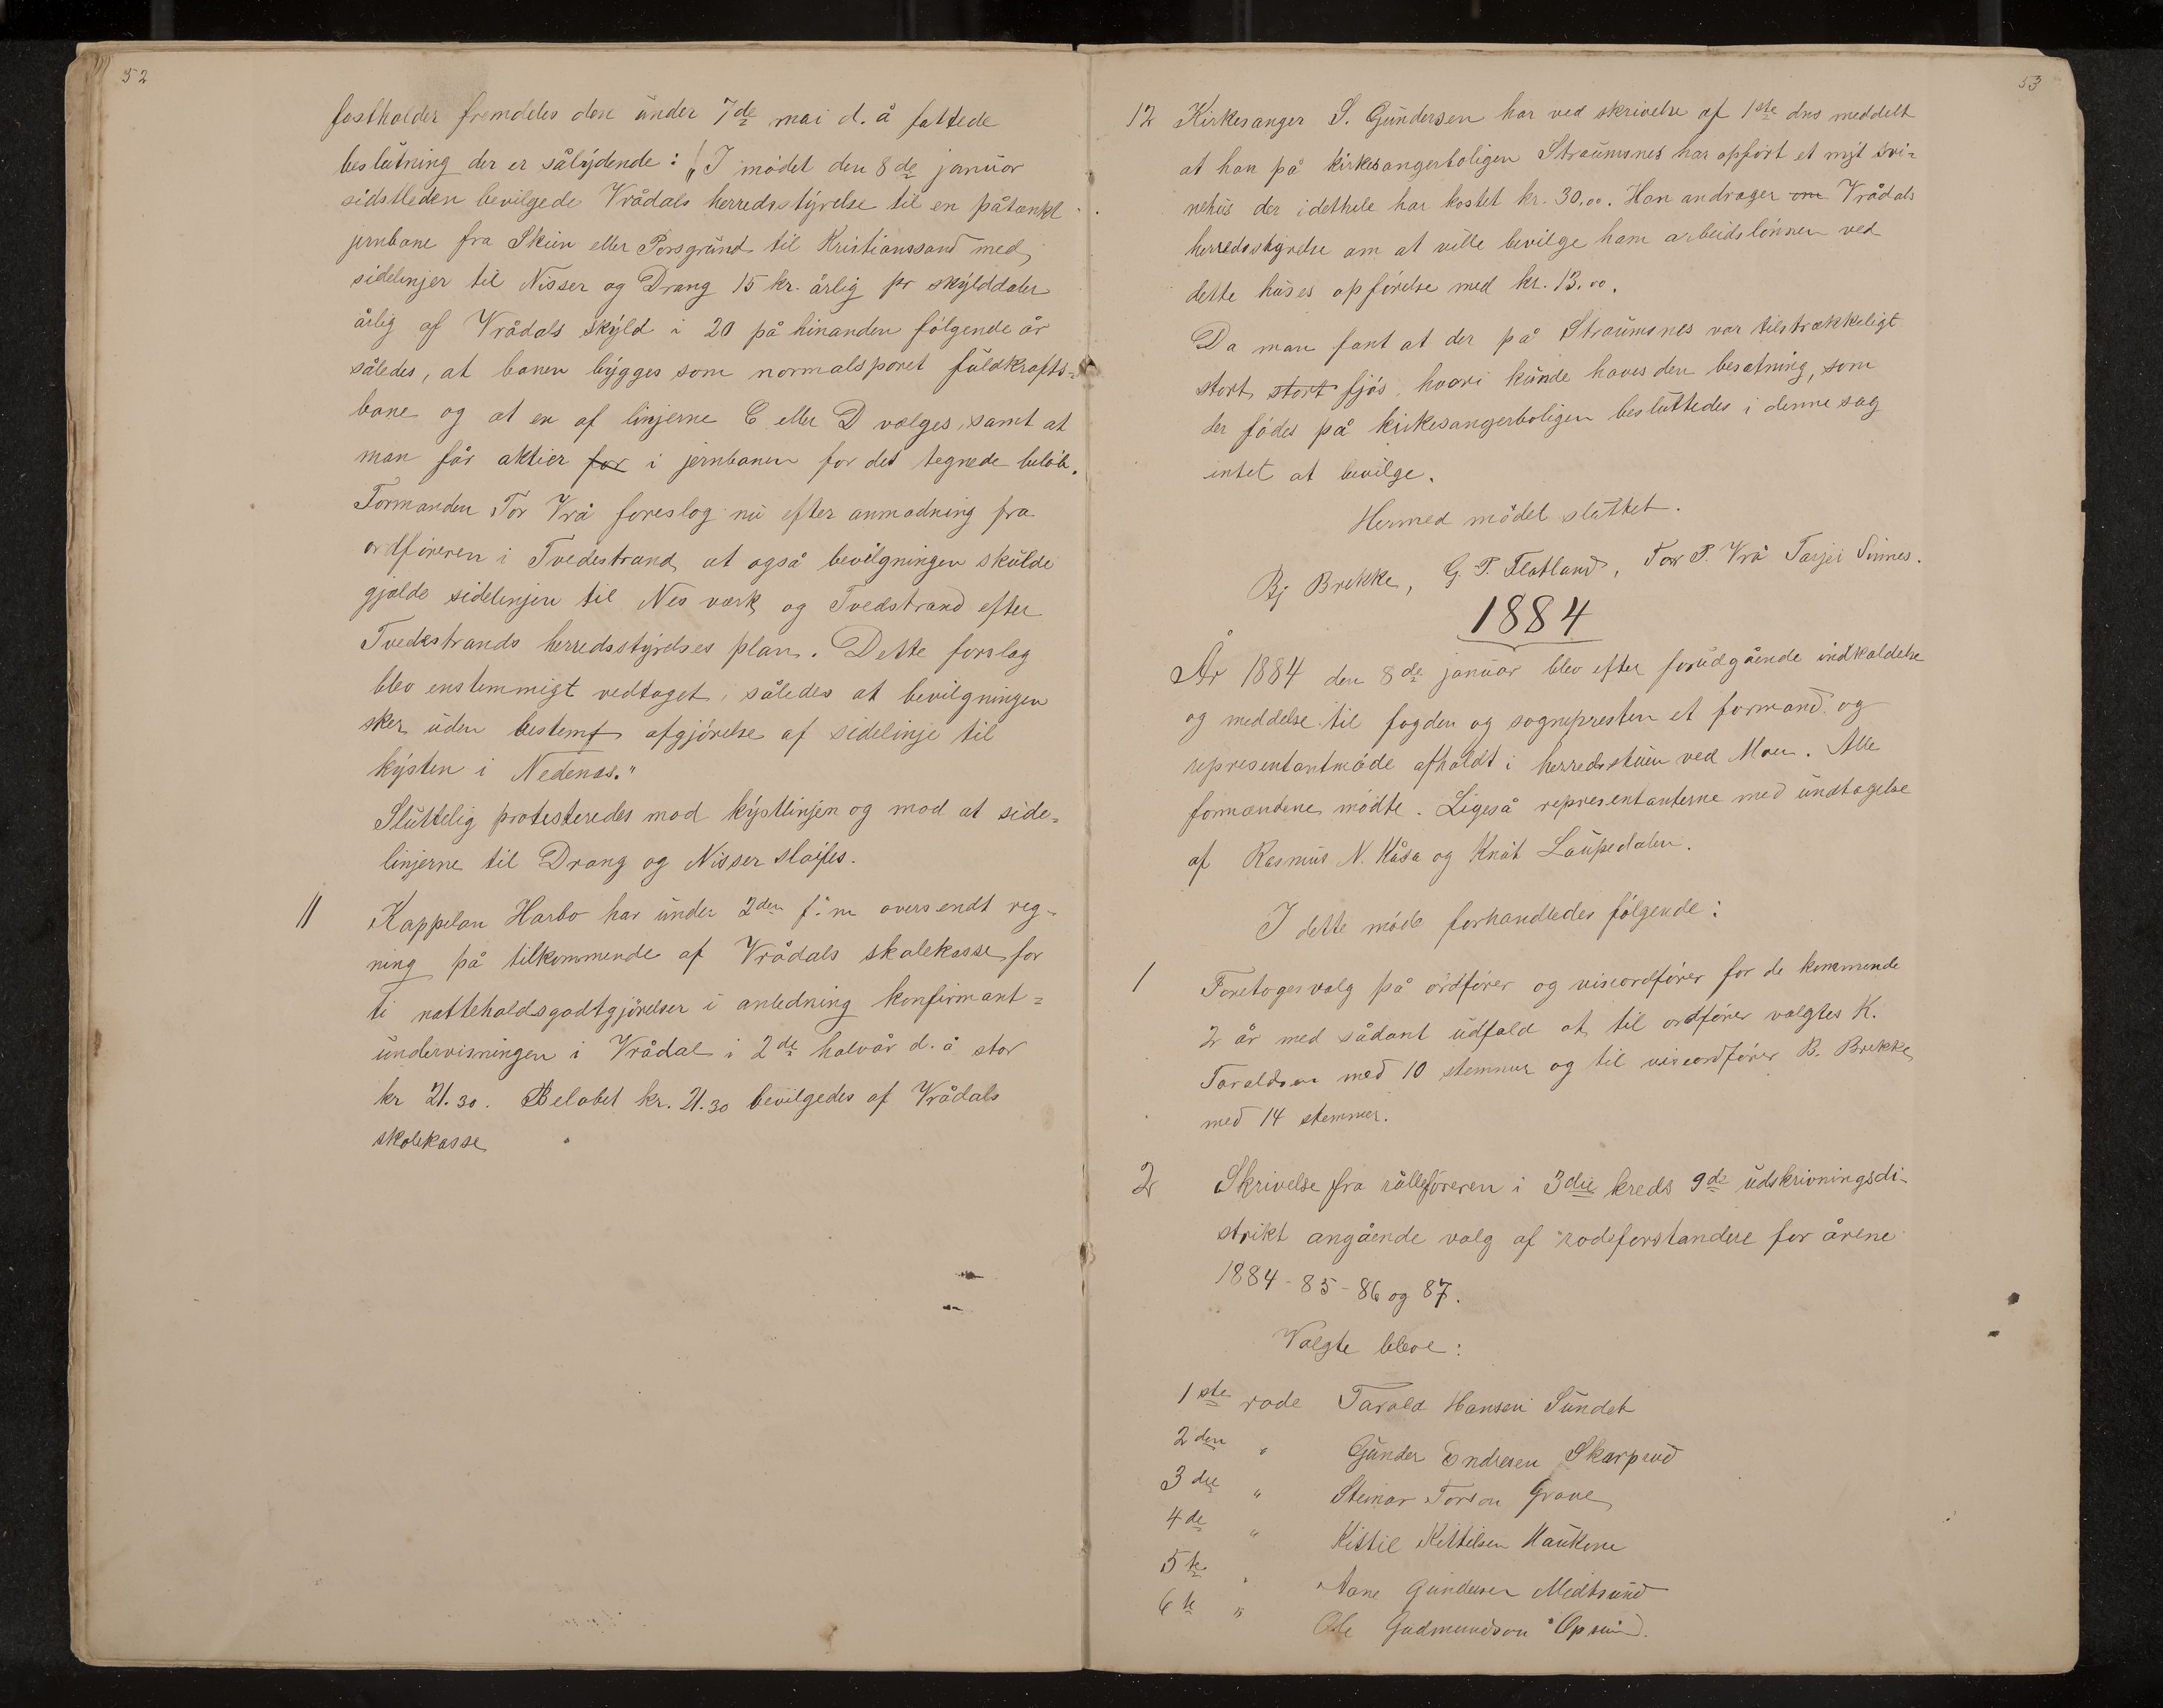 52
fastholder fremdeles den under 7de mai d. å fattede
beslutning der er sålydende: "I mödet den 8de januar
sidstleden bevilgede Vrådals herredsstyrelse til en påtænkt
jernbane fra Skien eller Porsgrund til Kristianssand med
sidelinjer til Nisser og Drang 15 kr. årlig pr skylddaler
årlig af Vrådals skyld i 20 på hinanden fölgende år
således, at banen bygges som normalsporet fuldkrafts=
bane og at en af linjerne C eller D vælges, samt at
man får aktier for i jernbanen for det tegnede belöb.
Formanden Tor Vrå foreslog nu efter anmodning fra
ordföreren i Tvedestrand at også bevilgningen skulde
gjælde sidelinjen til Nes værk og Tvedstrand efter
Tvedestrands herredsstyrelses plan. Dette forslag
blev enstemmigt vedtaget, således at bevilgningen
sker uden bestemt afgjörelse af sidelinje til
kysten i Nedenæs."
Sluttelig protesteredes mod kystlinjen og mod at side=
linjerne til Drang og Nisser sløifes.
11 Kappelan Harbo har under 2den f. m oversendt reg-
ning på tilkommende af Vrådals skolekasse for
ti natteholdsgodtgjörelser i anledning konfirmant=
undervisningen i Vrådal i 2de halvår d. å stor
kr 21.30. Beløbet kr. 21.30 bevilgedes af Vrådals
skolekasse
53
12 Kirkesanger S. Gundersen har ved skrivelse af 1ste dns meddelt
at han på kirkesangerboligen Straumsnes har opfört et nyt svi=
nehus der idethele har kostet kr. 30.00. Han andrager om Vrådals
herredsstyrelse om at ville bevilge ham arbeidslönnen ved
dette huses opförelse med kr. 13.00.
Da man fant at der på Straumsnes var tilstrækkeligt
stort stort fjös hvori kunde haves den besætning, som
der födes på kirkesangerboligen besluttedes i denne sag
intet at bevilge.
Hermed mödet sluttet.
Bj Brekke, G. T. Flatland, Tor P. Vrå Tarjei Sinnes.
1884
År 1884 den 8de januar blev efter forudgående indkaldelse
og meddelse til fogden og sognepresten et formand og
representantmöde afholdt i herredsstuen ved Moen. Alle
formændene mödte. Ligeså representanterne med undtagelse
af Rasmus N. Kåsa og Knut Laupedalen.
I dette möde forhandledes fölgende:
1 Foretoges valg på ordförer og viseordförer for de kommende
2 år med sådant udfald at til ordförer valgtes K.
Taraldsen med 10 stemmer og til viseordförer B. Brekke
med 14 stemmer.
2 Skrivelse fra rulleföreren i 3die kreds 9de udskrivningsdi-
strikt angående valg af rodeforstandere for årene
1884-85-86 og 87.
Valgte bleve:
1ste rode Tarald Hansen Sundet
2den " Gunder Endresen Skarprud
3die " Steinar Torson Grave
4de " Kittil Kittilsen Haukene
5te " Aane Gundersen Midtsund
6te " Ole Gudmundson Opsund.